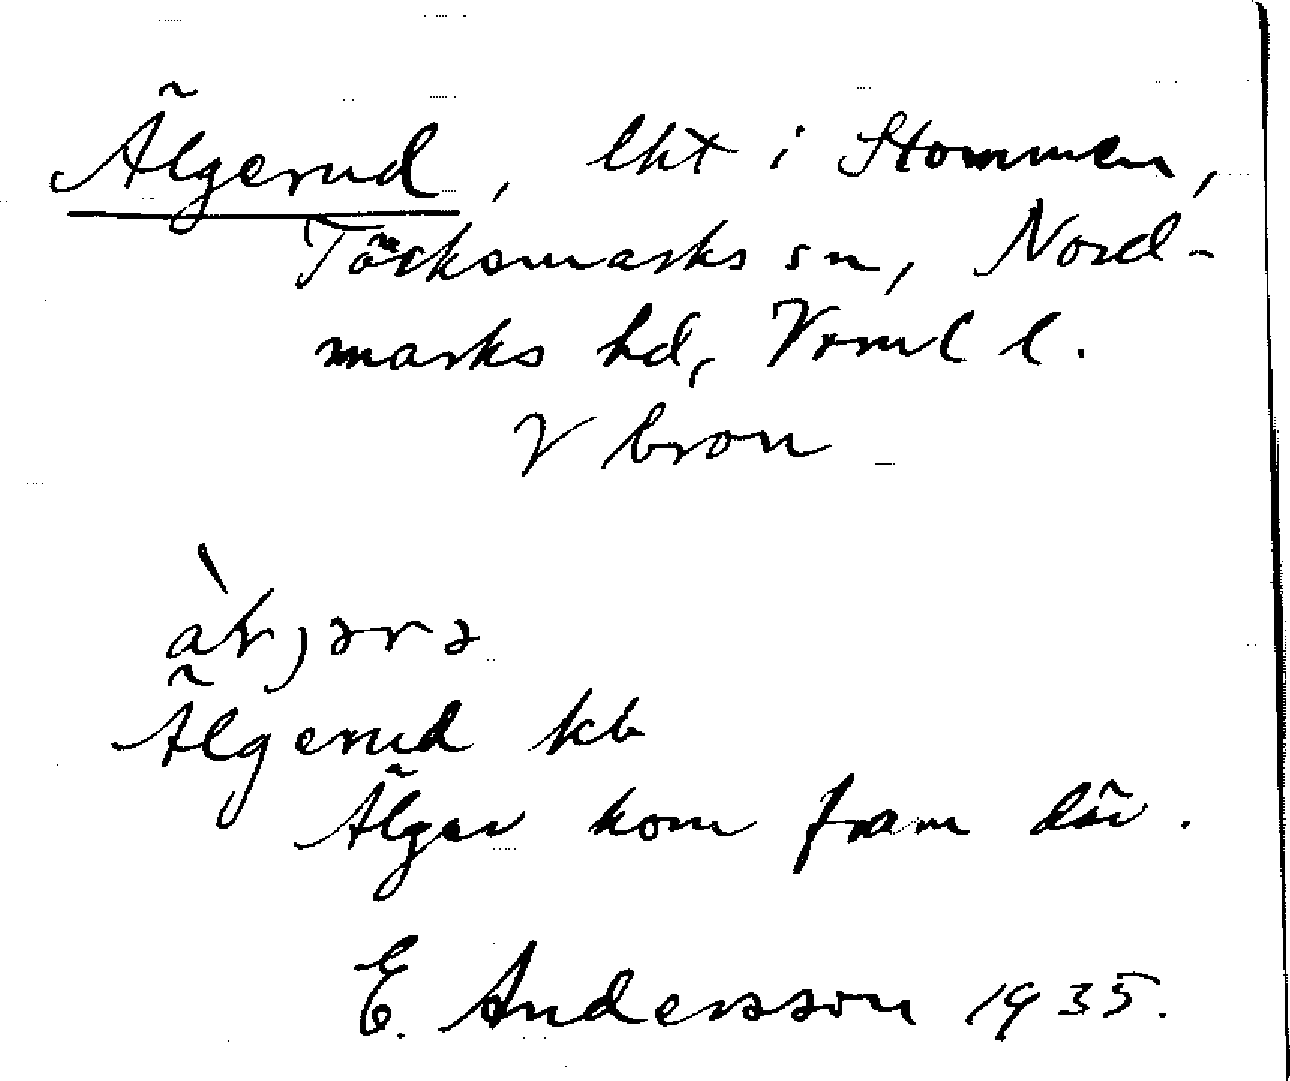 Älgerud, lht i Stommen,
Töcksmarks sn, Nord-
marks hd, Vrml l.
V bron
Älgerud kb
Älgar kom fram där.
E. Andersson 1935.